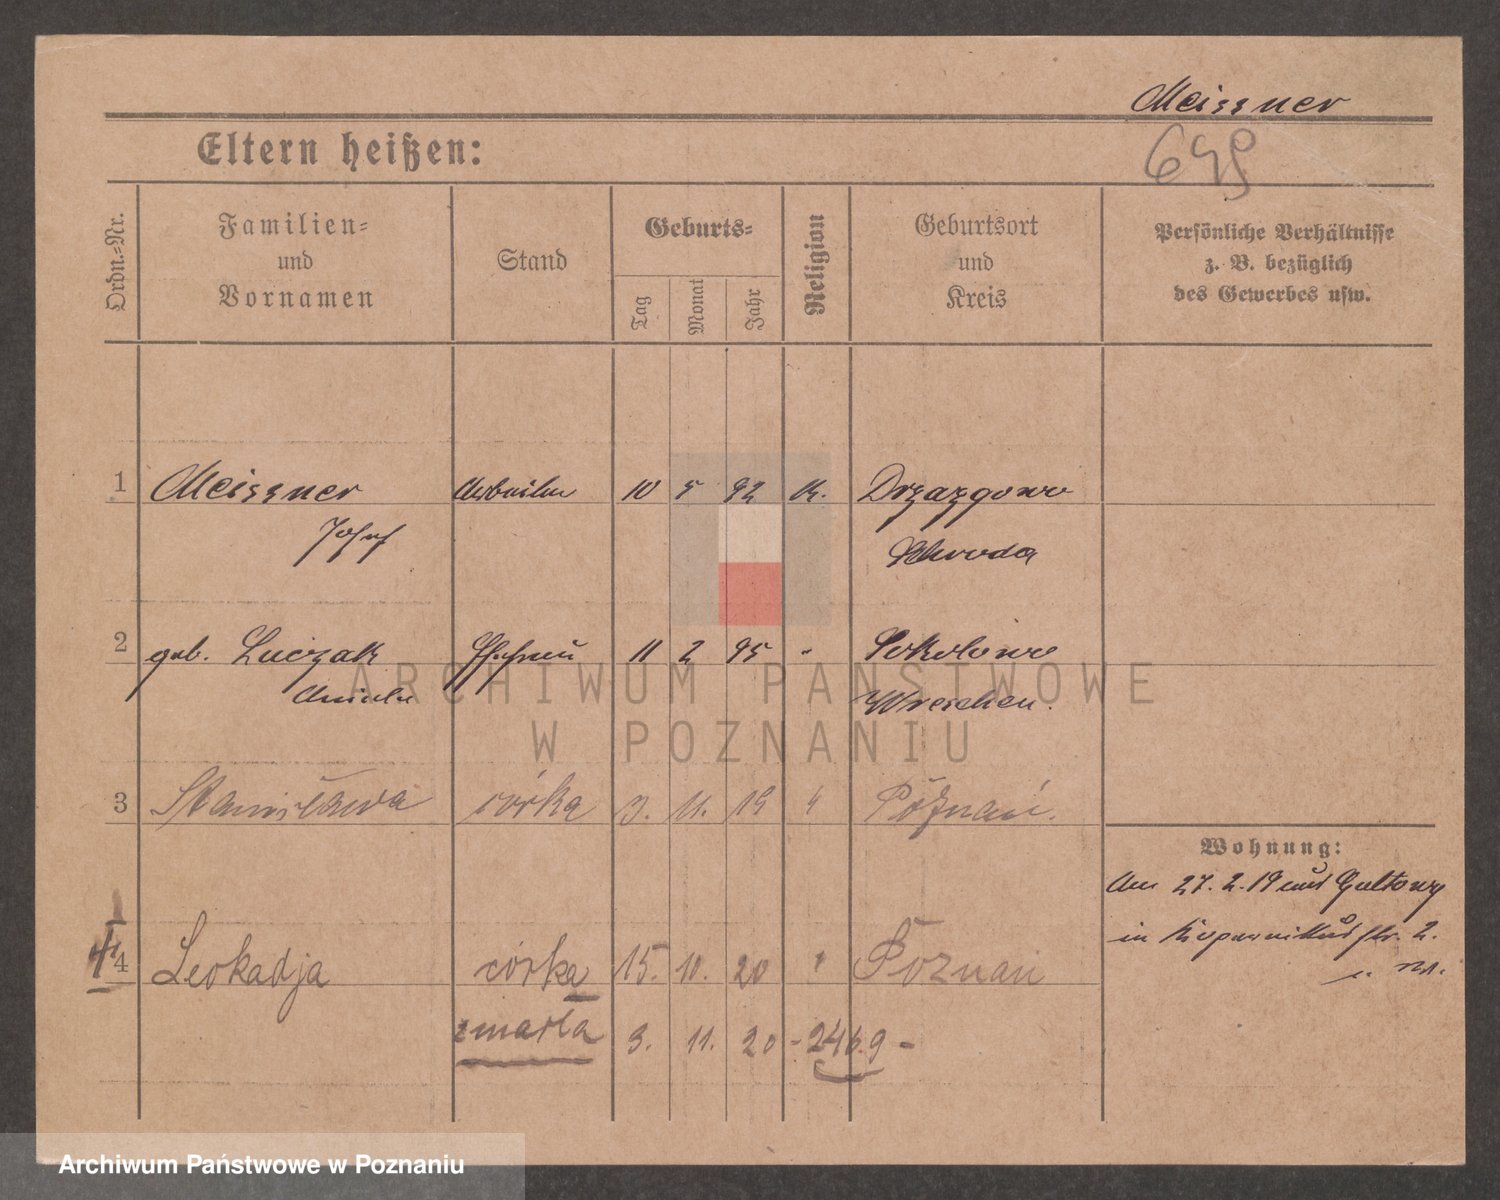 Meissner
Eltern heißen:
Ordn.-Nr.
Familien- und Vornamen
Stand
Geburts-
Tag
Monat
Jahr
Religion
Geburtsort und Kreis
Persönliche Verhältnisse
z. B. bezüglich
des Gewerbes usw.
1 Meissner Arbeiter 10 5 92 K. Drzazgowo
Josef Schroda
2 geb. Luczak Ehefrau 11 2 95 " Sokolowo
Wreschen.
ARCHIWUM PAŃSTWOWE
W POZNANIU
3 Stanisława córka 3. 11. 19 " Poznań.
Wohnung:
Am 27. 2. 19 aus Gultowy
in Kopernikusstr. 2.
4 Leokadja córka 15. 10. 20 " Poznań
zmarła 3. 11. 20 - 2469 -
Archiwum Państwowe w Poznaniu